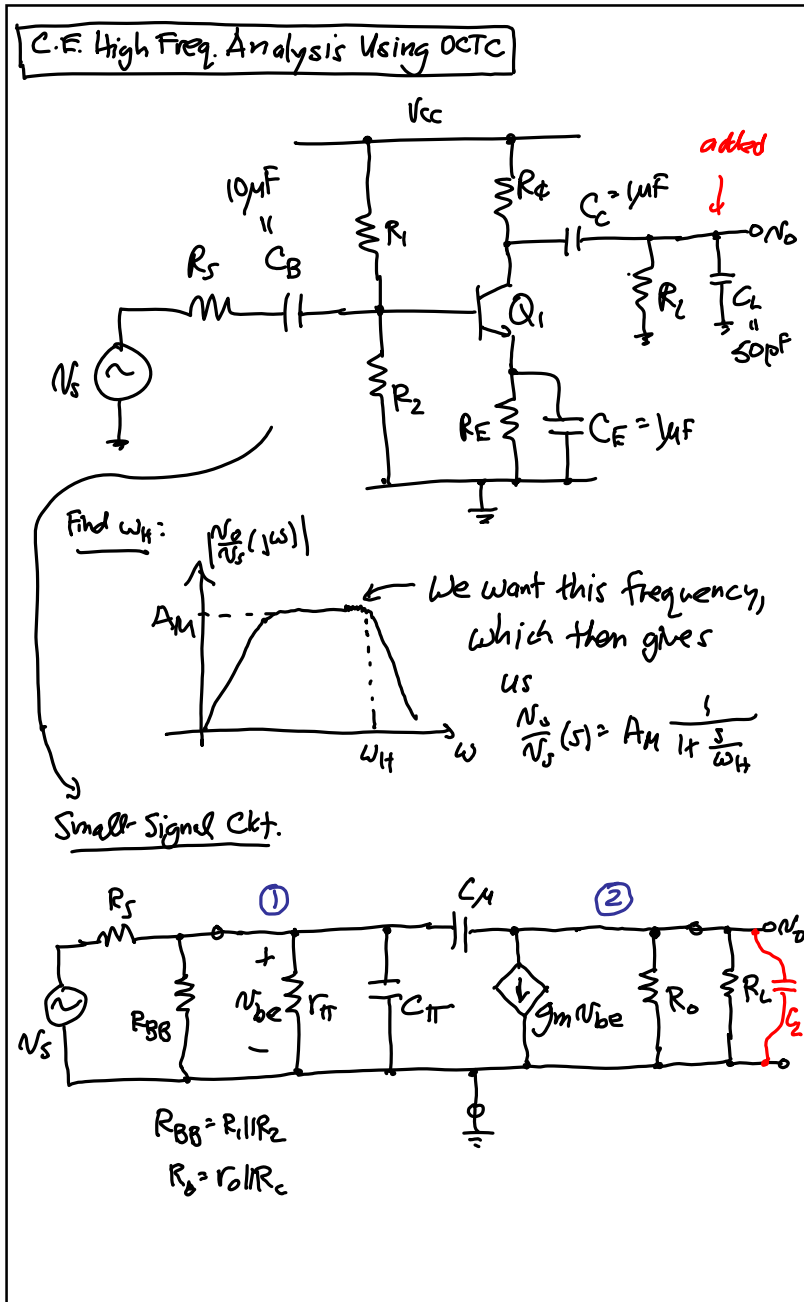 C.E. High Freq. Analysis Using OCTC
Vcc
added
10μF
"
C_B
R_S
R_1
R_C
C_C = 1μF
v_o
R_L
C_L
"
50pF
Q_1
v_s
R_2
R_E
C_E = 1μF
Find ω_H:
|v_o/v_s (jω)|
A_M
ω_H
ω
We want this frequency,
which then gives
us
v_o/v_s (s) = A_M 1/(1+ s/ω_H)
Small-Signal Ckt.
R_S
①
C_μ
②
v_o
v_s
R_BB
+
v_be
-
r_π
C_π
g_m v_be
R_o
R_L
C_L
R_BB = R_1||R_2
R_o = r_o||R_c